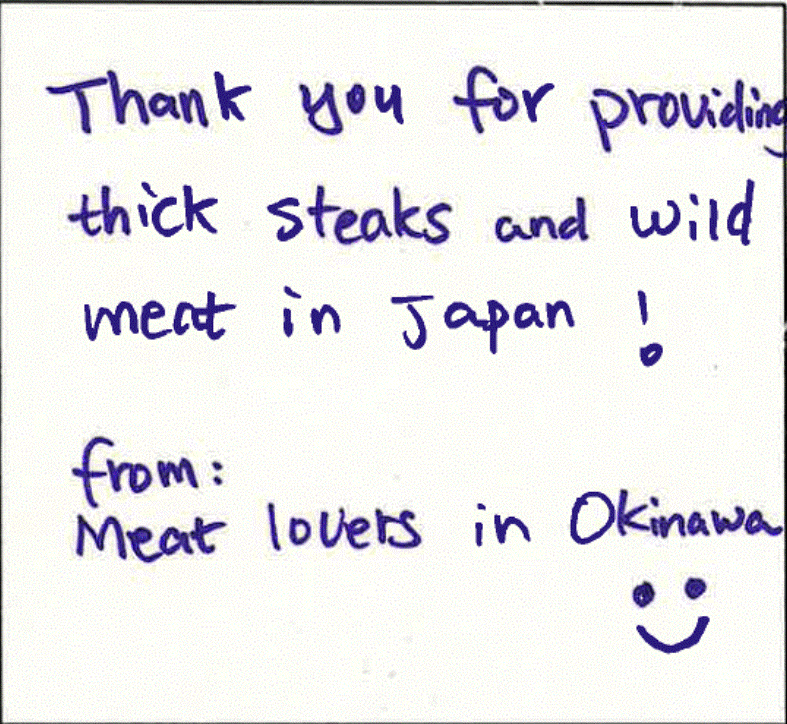 Thank you for providing
thick steaks and wild
meat in Japan !
from:
Meat lovers in Okinawa